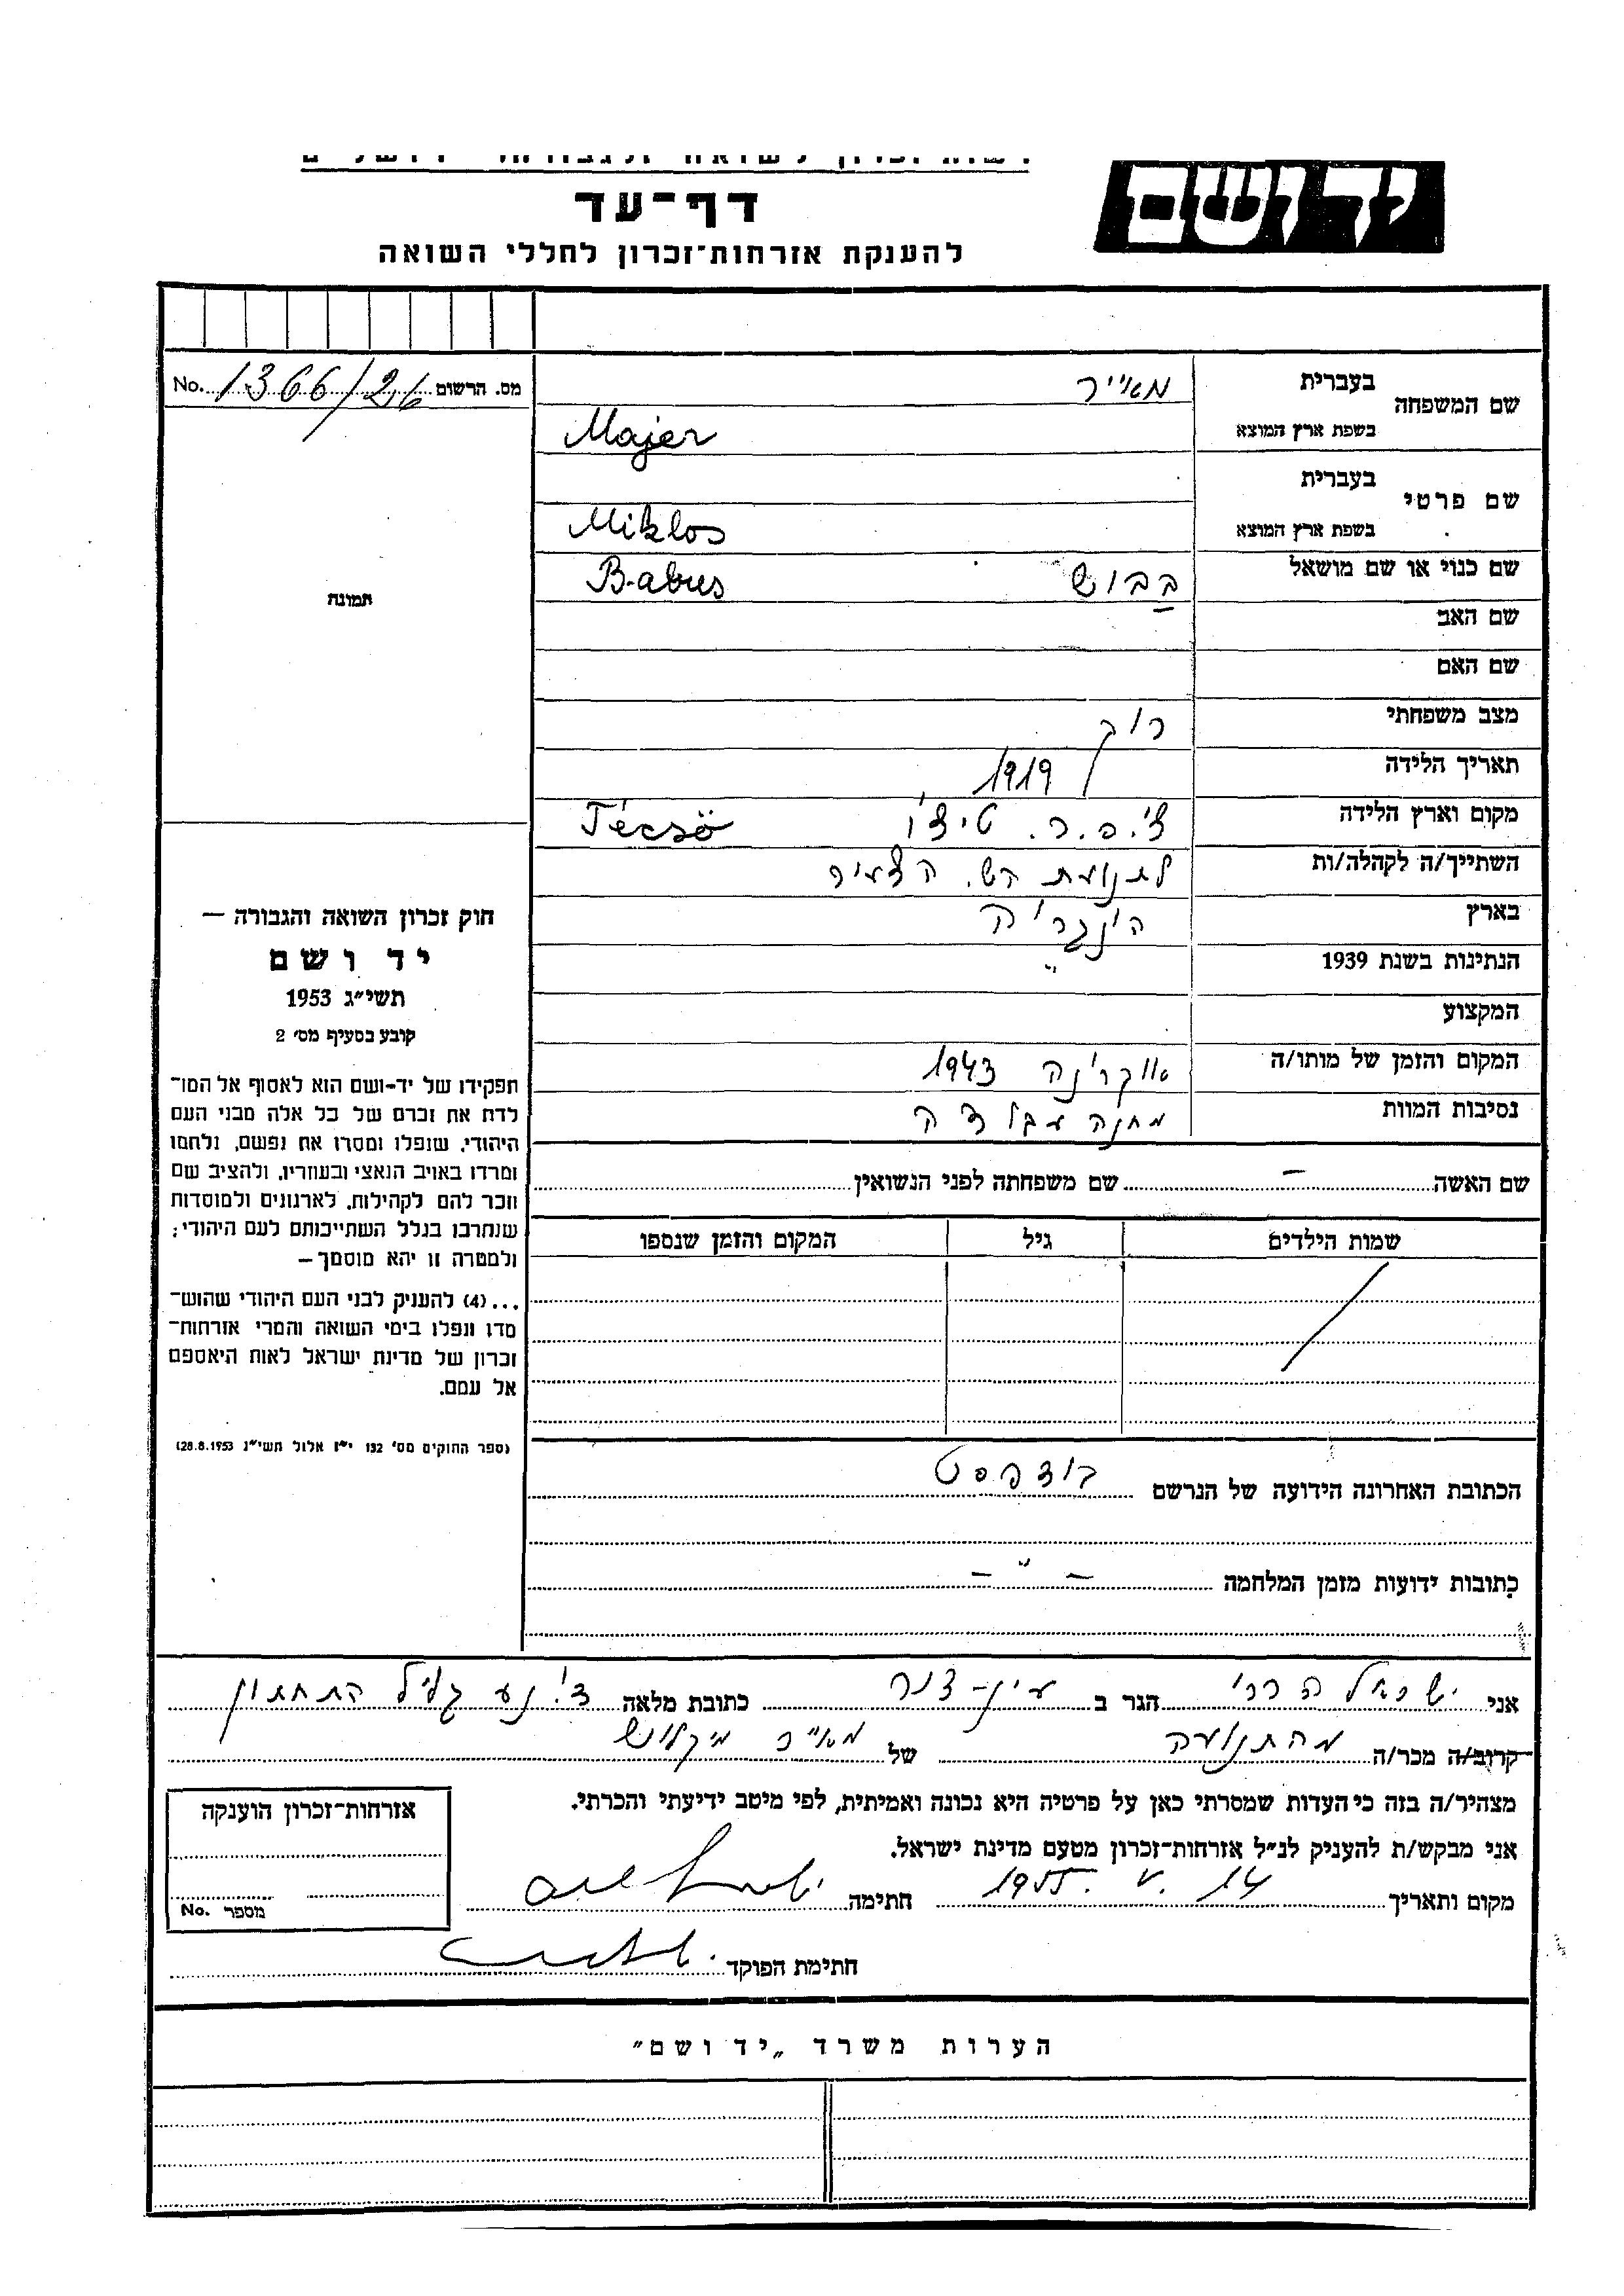 יד ושם
דף־עד
להענקת אזרחות־זכרון לחללי השואה
מס. הרשום 1366/26 No.
שם המשפחה
בעברית מאייר
בשפת ארץ המוצא Majer
שם פרטי
בעברית
בשפת ארץ המוצא Miklos
שם כנוי או שם מושאל בבוש Babus
שם האב
שם האם
מצב משפחתי רוק
תאריך הלידה 1919
מקום וארץ הלידה צ'.ס.ר. טיצ'ו Técsö
השתייך/ה לקהלה/ות לתנועת הש. הצעיר
בארץ הונגריה
הנתינות בשנת 1939 "
המקצוע
המקום והזמן של מותו/ה אוקרינה 1943
נסיבות המוות מחנה עבודה
תמונה
חוק זכרון השואה והגבורה —
יד ושם
תשי״ג 1953
קובע בסעיף מס׳ 2
תפקידו של יד-ושם הוא לאסוף אל המו־
לדת את זכרם של כל אלה מבני העם
היהודי, שנפלו ומסרו את נפשם, נלחמו
ומרדו באויב הנאצי ובעוזריו, ולהציב שם
וזכר להם לקהילות, לארגונים ולמוסדות
שנחרבו בגלל השתייכותם לעם היהודי;
ולמטרה זו יהא מוסמך —
...(4) להעניק לבני העם היהודי שהוש־
מדו ונפלו בימי השואה והמרי אזרחות־
זכרון של מדינת ישראל לאות היאספם
אל עמם.
(ספר החוקים מס׳ 132 י״ז אלול תשי״ג 28.8.1953)
שם האשה — שם משפחתה לפני הנשואין
שמות הילדים גיל המקום והזמן שנספו
הכתובת האחרונה הידועה של הנרשם בודפסט
כתובות ידועות מזמן המלחמה — " —
אני ישראל הררי הגר ב עין-דור כתובת מלאה ד. נע גליל התחתון
קרוב/ה מכר/ה מהתנועה של מאייר מיקלוש
מצהיר/ה בזה כי העדות שמסרתי כאן על פרטיה היא נכונה ואמיתית, לפי מיטב ידיעתי והכרתי.
אני מבקש/ת להעניק לנ״ל אזרחות־זכרון מטעם מדינת ישראל.
מקום ותאריך 14. V. 1955 חתימה
חתימת הפוקד
אזרחות־זכרון הוענקה
מספר No.
הערות משרד „יד ושם"